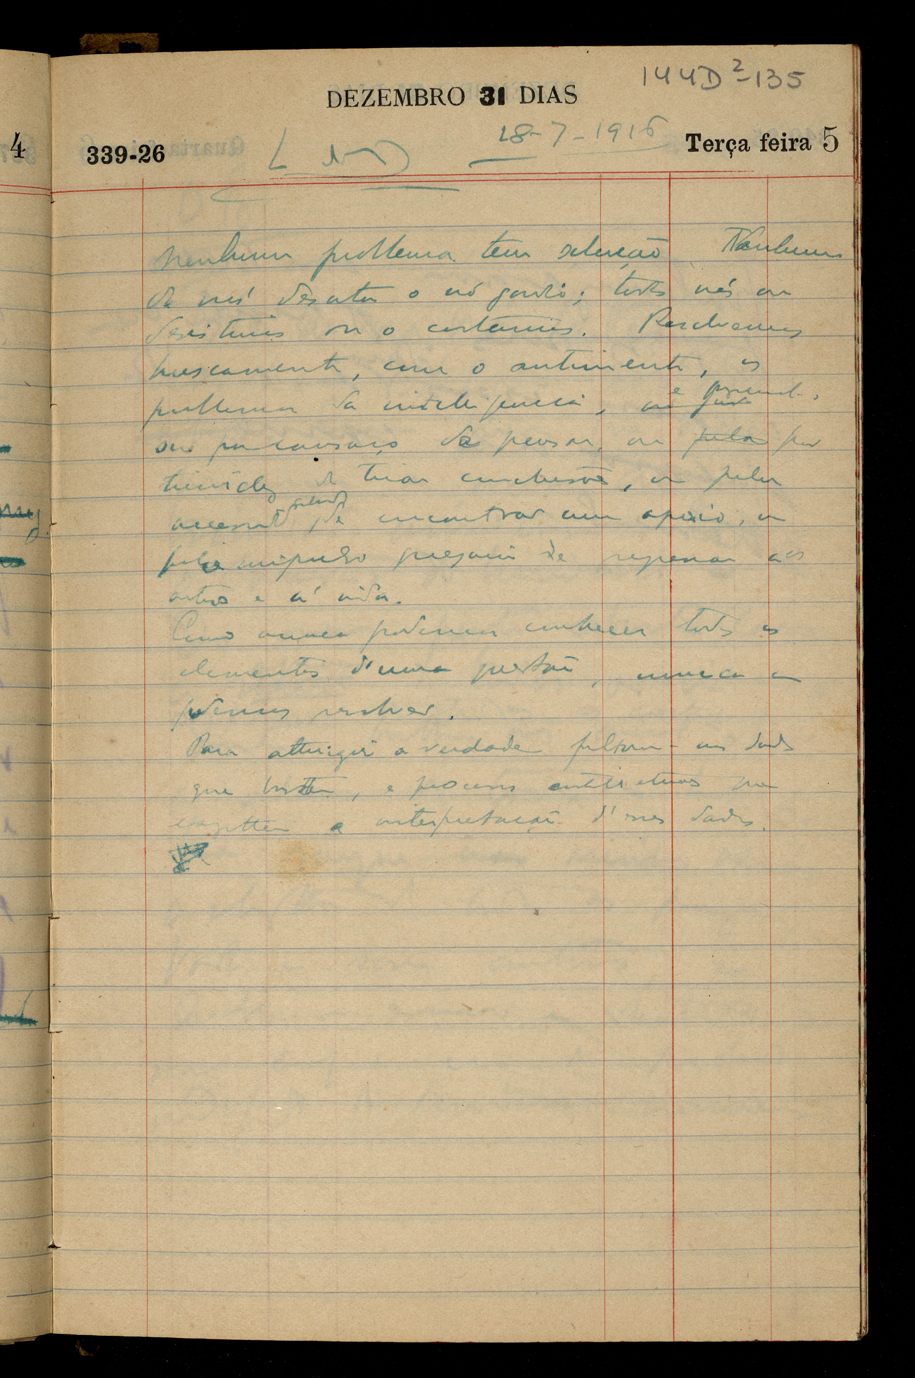 144D²-135
DEZEMBRO 31 DIAS
4
339-26
L. do D.
18-7-1916
Terça feira 5
Nenhum problema tem solução. Nenhum
de nós desata o nó gordio; todos nós ou
desistimos ou o cortamos. Resolvemos
bruscamente, com o sentimento, os
problemas da intelligencia, e fazemol-
o ou por cansaço de pensar, ou pela por
timidez de tirar conclusões, ou pela
necessidade absurda de encontrar um apoio, ou
pelo impulso gregario de regressar aos
outros e á vida.
Como nunca podemos conhecer todos os
elementos d'uma questão, nunca a
podemos resolver.
Para attingir a verdade faltam-nos dados
que bastem, e processos intellectuaes que
esgottem a interpretação d'esses dados.